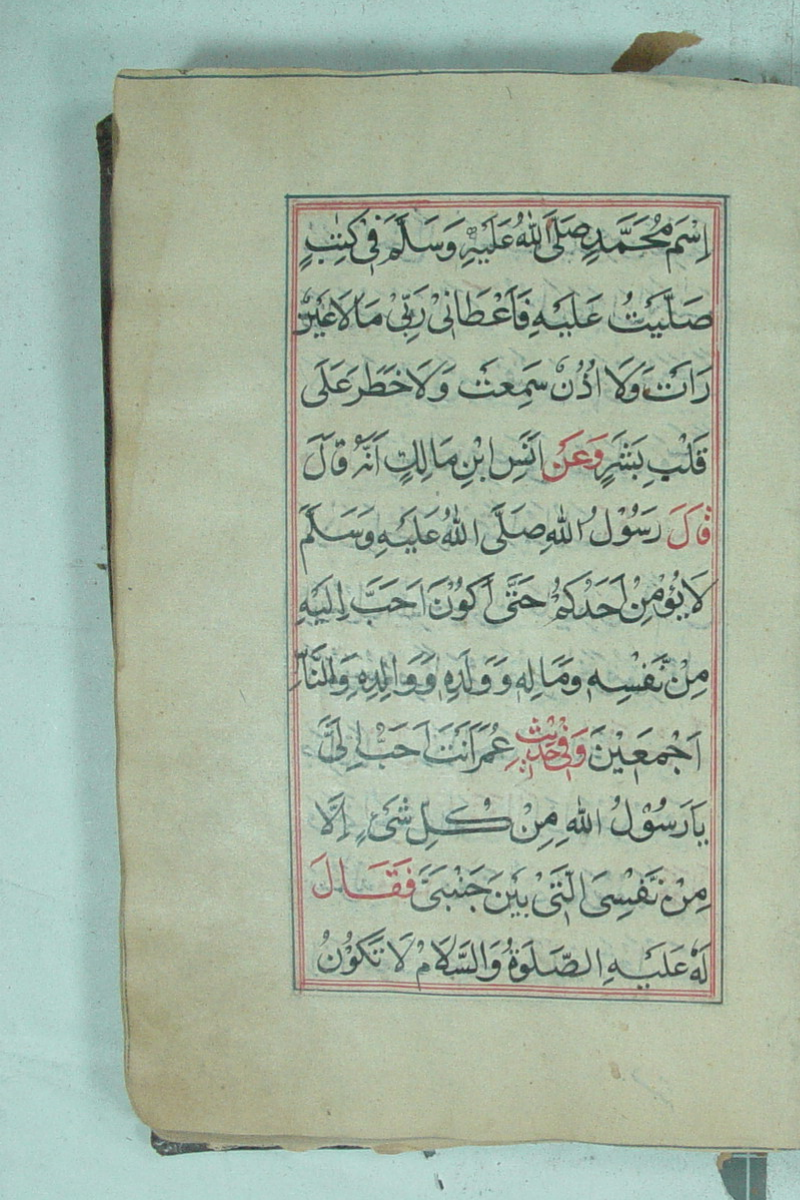 اِسْمَ مُحَمَّدٍ صَلَّى اللهُ عَلَيْهِ وَسَلَّمَ فِىْ كِتٰبٍ
صَلَّيْتُ عَلَيْهِ فَاَعْطَانِىْ رَبِّىْ مَا لَا عَيْنٌ
رَاَتْ وَلَا اُذُنٌ سَمِعَتْ وَلَا خَطَرَ عَلَى
قَلْبِ بَشَرٍ وَعَنْ اَنَسِ ابْنِ مَالِكٍ اَنَّهُ قَالَ
قَالَ رَسُوْلُ اللهِ صَلَّى اللهُ عَلَيْهِ وَسَلَّمَ
لَا يُؤْمِنُ اَحَدُكُمْ حَتَّى اَكُوْنَ اَحَبَّ اِلَيْهِ
مِنْ نَّفْسِهٖ وَمَالِهٖ وَوَلَدِهٖ وَوَالِدِهٖ وَالنَّاسِ
اَجْمَعِيْنَ وَفِىْ حَدِيْثِ عُمَرَ اَنْتَ اَحَبُّ اِلَىَّ
يَا رَسُوْلُ اللهِ مِنْ كُلِّ شَىْءٍ اِلَّا
مِنْ نَّفْسِىَ الَّتِىْ بَيْنَ جَنْبَىَّ فَقَالَ
لَهٗ عَلَيْهِ الصَّلٰوةُ وَالسَّلَامُ لَا تَكُوْنُ